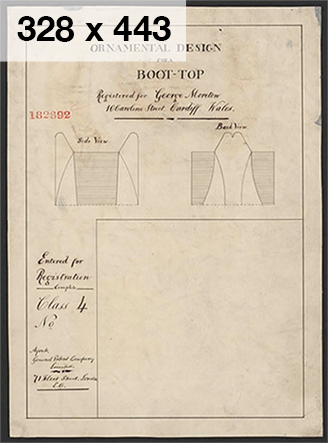 328 x 443
ORNAMENTAL DESIGN
FOR A
BOOT-TOP
Registered for George Moreton
16 Caroline Street Cardiff Wales.
182392
Side View
Back View
Entered for
Registration
Complete
Class 4
No
Agents
General Patent Company
Limited
71 Fleet Street, London
E.C.